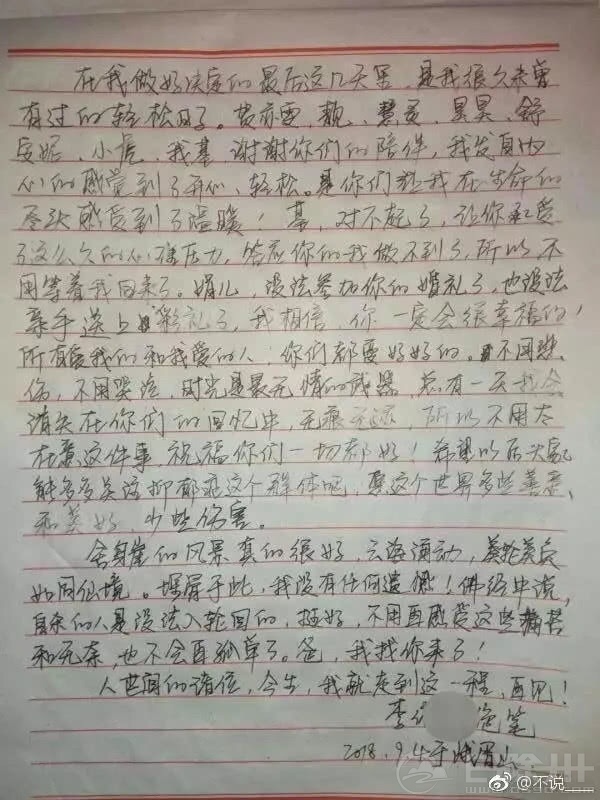 在我做好决定的最后这几天里，是我很久未曾
有过的轻松日子。黄亦雯，靓，慧灵，昊昊，舒
安妮，小虎，我基，谢谢你们的陪伴，我发自内
心的感觉到了开心、轻松。是你们让我在生命的
尽头感受到了温暖！基，对不起了，让你承受
了这么久的心理压力，答应你的我做不到了，所以，不
用等着我回来了。娟儿，没法参加你的婚礼了，也没法
亲手送上彩礼了，我相信，你一定会很幸福的！
所有爱我的和我爱的人，你们都要好好的。不用悲
伤，不用哭泣，时光是最无情的武器，总有一天我会
消失在你们的回忆中，无痕无迹，所以不用太
在意这件事，祝福你们一切都好！希望以后大家
能多多关注抑郁症这个群体吧，愿这个世界多些善意、
和美好，少些伤害。
舍身崖的风景真的很好，云海涌动，美轮美奂
如同仙境。埋屏于此，我没有任何遗憾！佛经中说，
自杀的人是没法入轮回的，挺好，不用再感受这些痛苦
和无奈，也不会再孤单了。爸，我找你来了！
人世间的诸位，今生，我就走到这一程，再见！
李 绝笔
2018.9.4于峨眉山
@不说